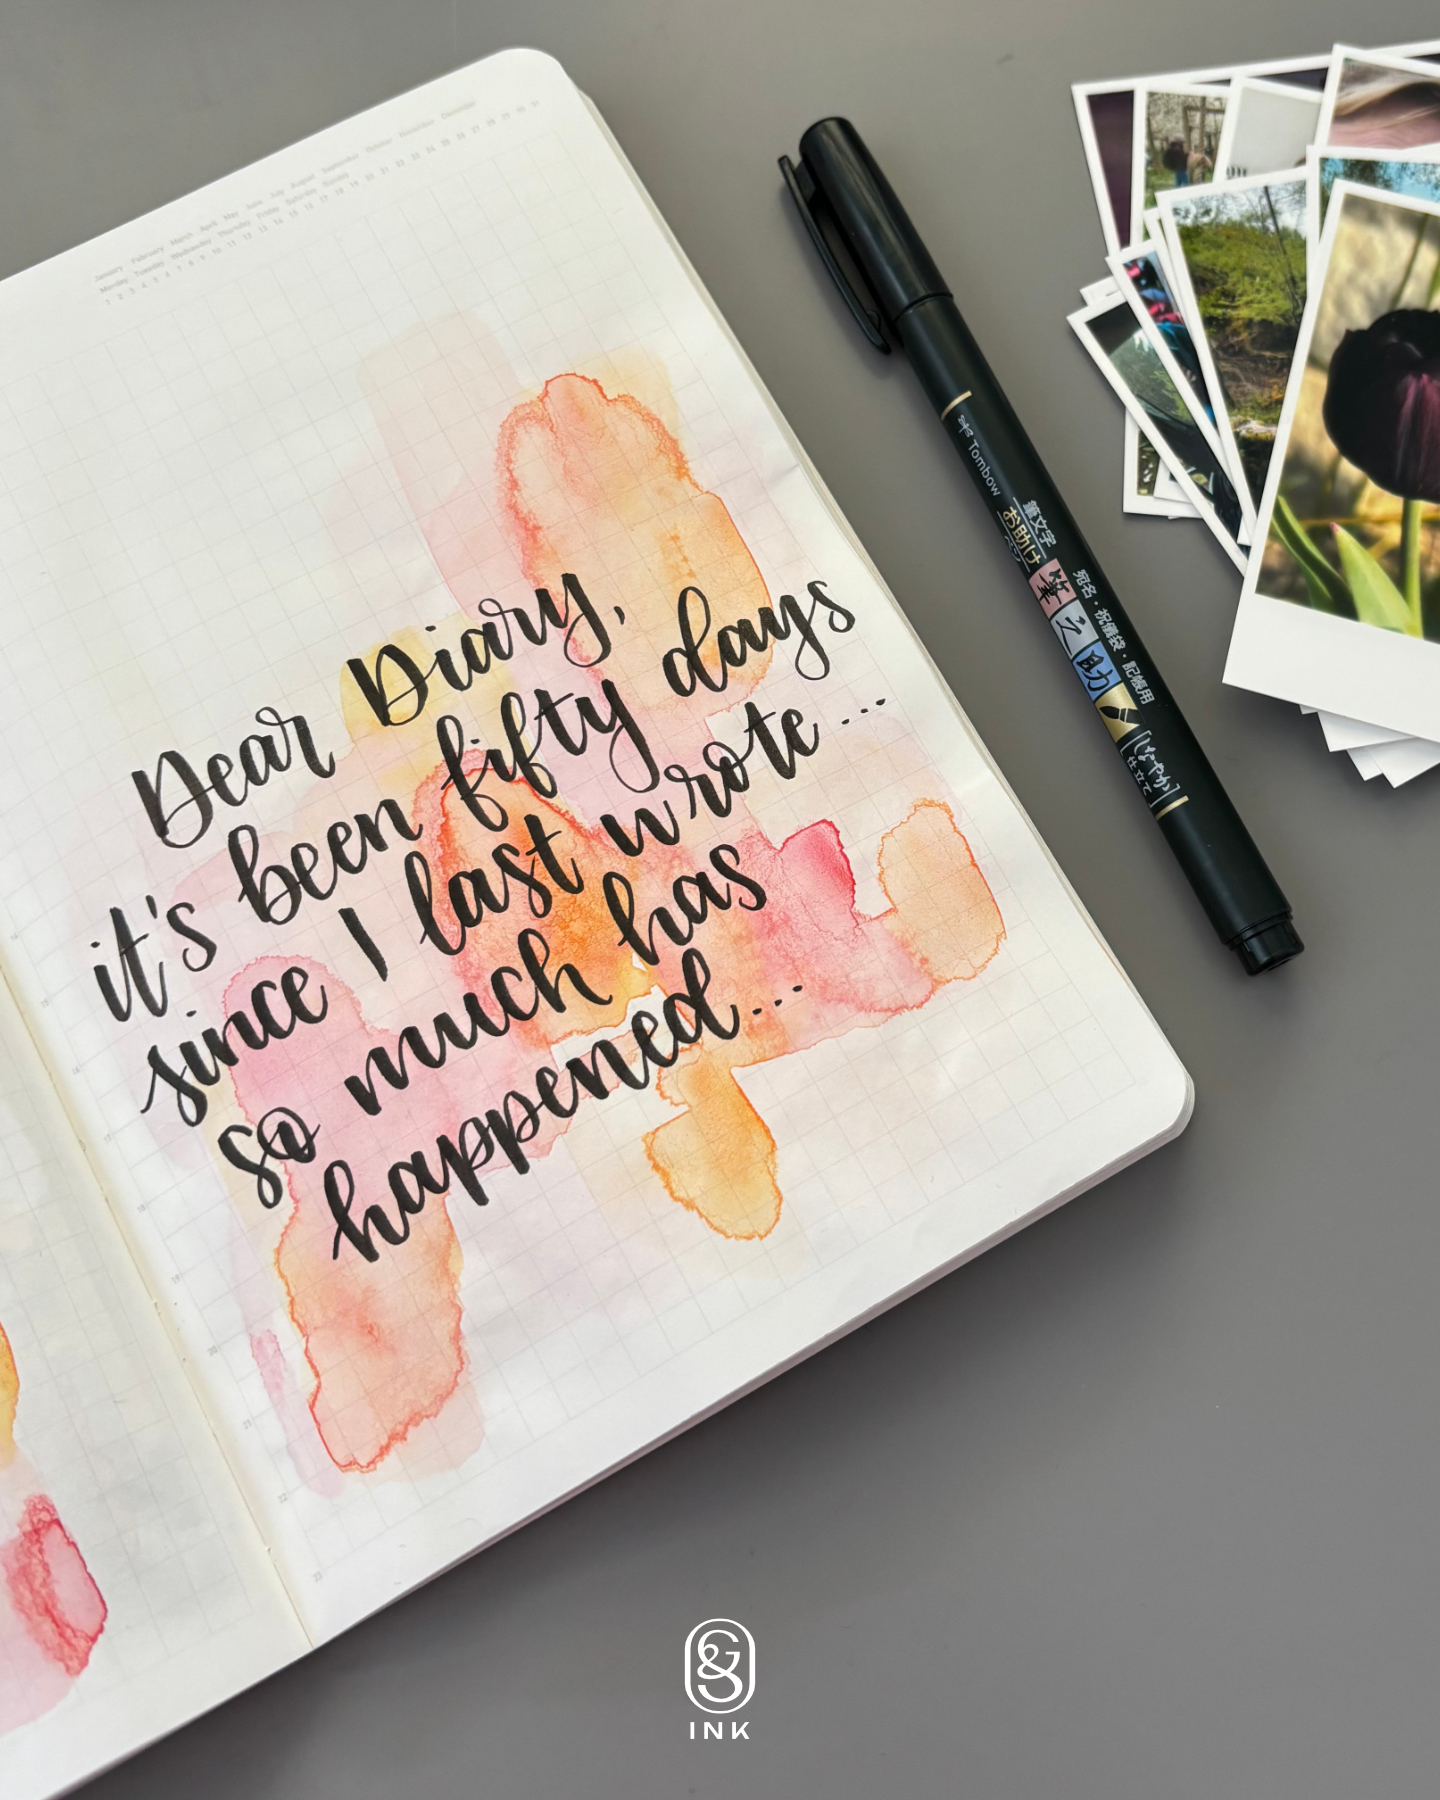 January February March April May June July August September October November December
Monday Tuesday Wednesday Thursday Friday Saturday Sunday
1 2 3 4 5 6 7 8 9 10 11 12 13 14 15 16 17 18 19 20 21 22 23 24 25 26 27 28 29 30 31
Dear Diary,
it's been fifty days
since I last wrote...
so much has
happened...
16
17
19
20
21
22
23
Tombow
筆文字
お助け
宛名・祝儀袋・記帳用
筆之助
しなやか
仕立て
INK